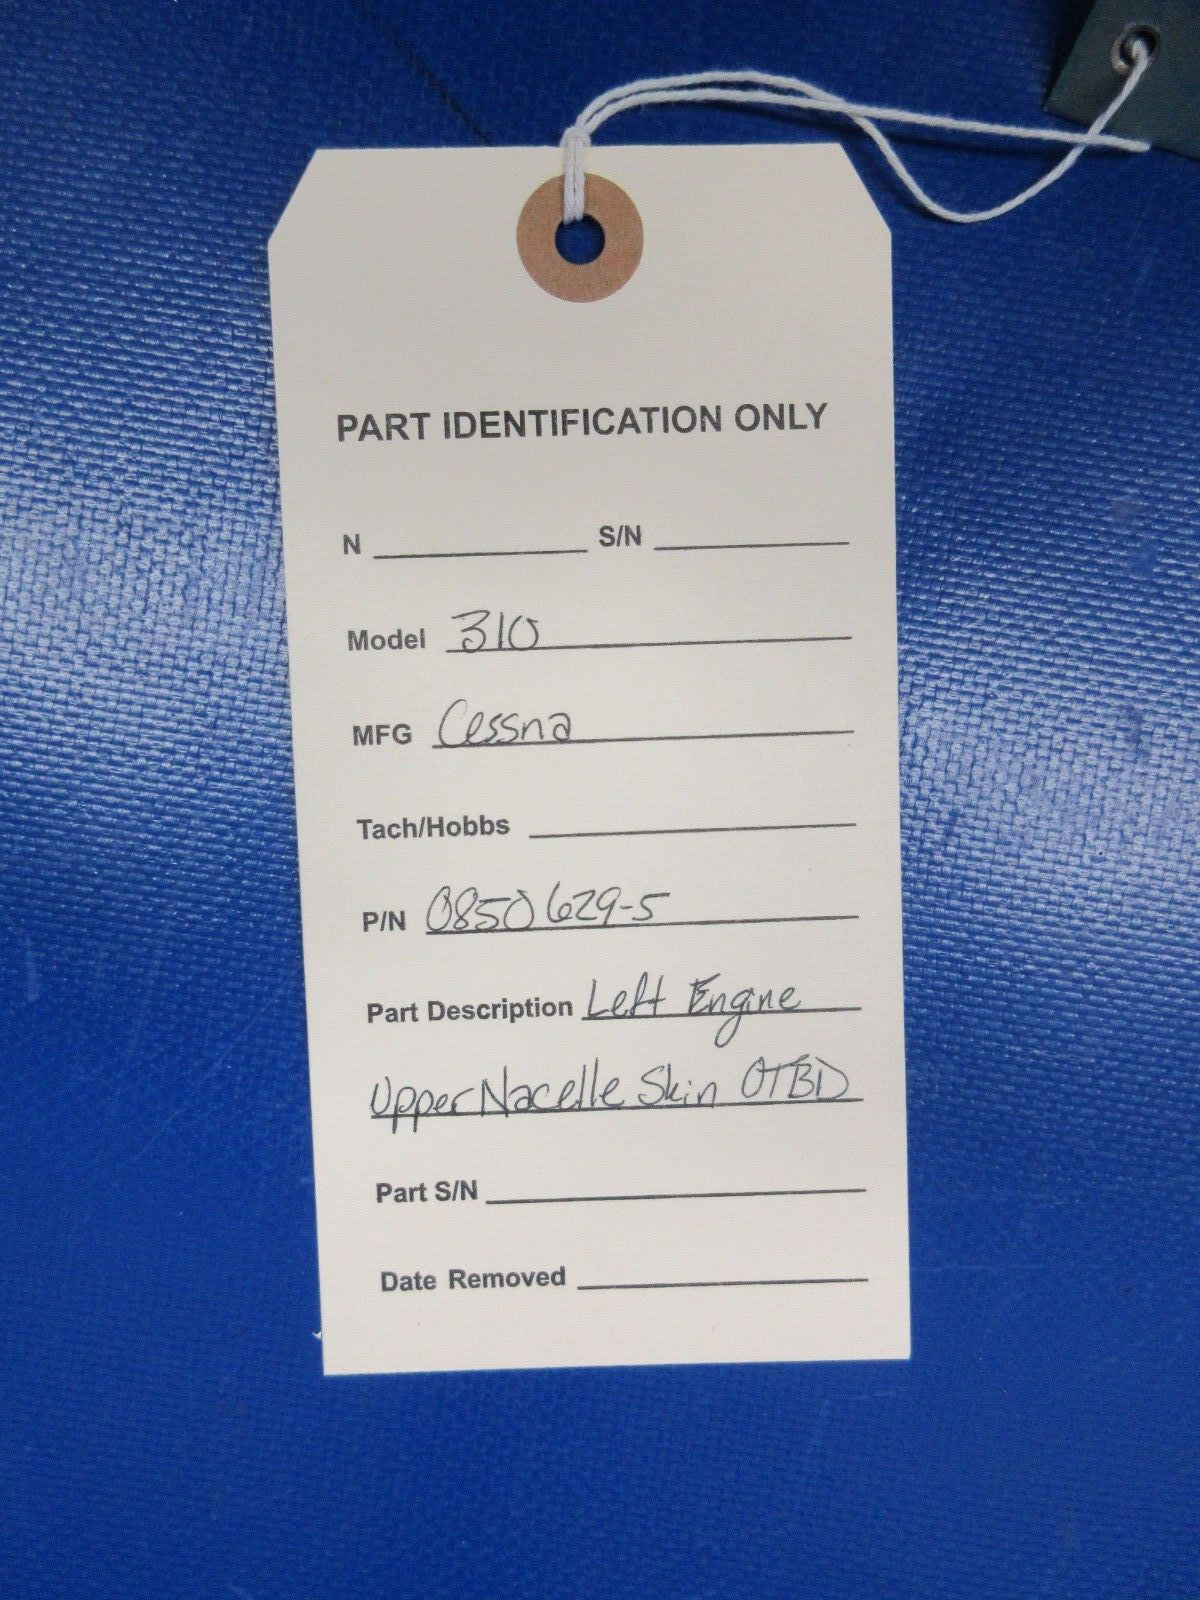 PART IDENTIFICATION ONLY
N S/N
Model 310
MFG Cessna
Tach/Hobbs
P/N 0850629-5
Part Description Left Engine
Upper Nacelle Skin OTBD
Part S/N
Date Removed